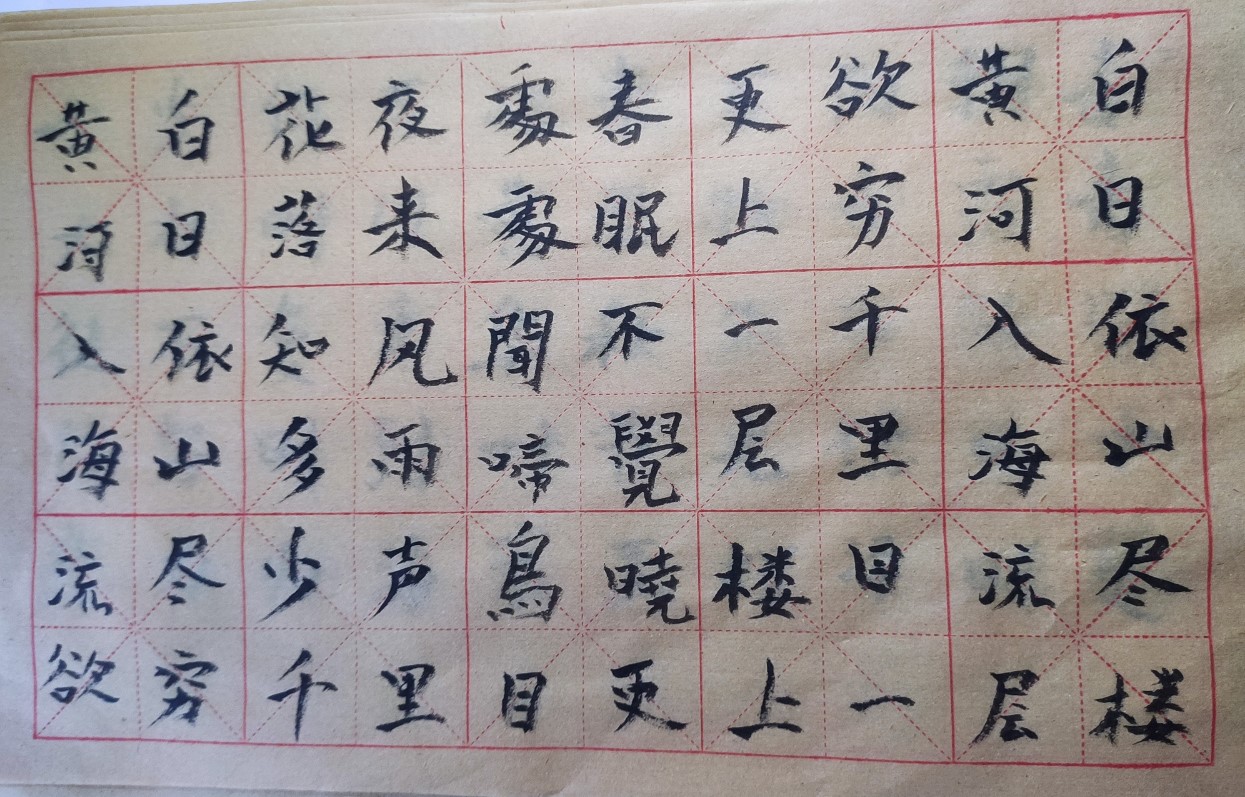 白日依山尽
黄河入海流
欲穷千里目
更上一层楼
春眠不覺曉
處處聞啼鳥
夜来风雨声
花落知多少
白日依山尽
黄河入海流
欲穷千里目更上一层楼